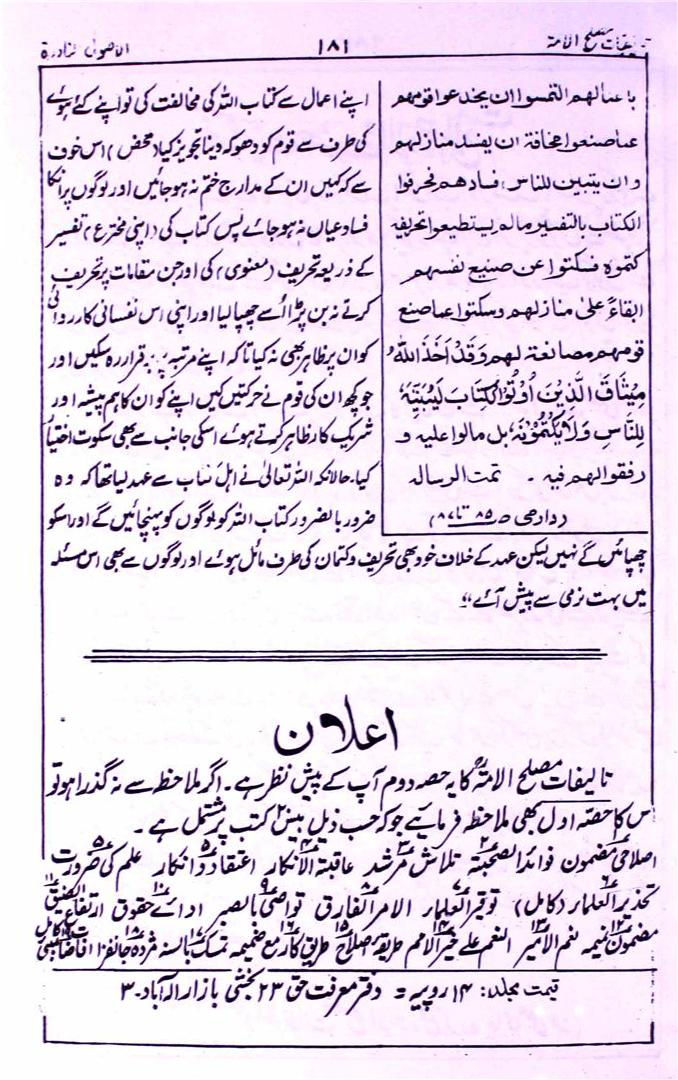 تالیفات مصلح الامۃ ۱۸۱ الاصول النادرۃ
باعمالهم التمسوا ان يخدعوا قومهم
عما صنعوا مخافة ان يفسد منازلهم
وان يتبين للناس فسادهم فحرفوا
الكتاب بالتفسير ومالم يستطيعوا تحريفه
كتموه فسكتوا عن صنيع نفسهم
ابقاءً على منازلهم وسكتوا عما صنع
قومهم مصانعة لهم وَقَدْ اَخَذَ اللهُ
مِيْثَاقَ الَّذِيْنَ اُوْتُوا الْكِتَابَ لَتُبَيِّنُنَّهٗ
لِلنَّاسِ وَلَا يَكْتُمُوْنَهٗ بل مالوا عليه و
رفقوا لهم فيه ۔ تمت الرسالہ
(دارمی ص ۸۵ تا ۸۷)
اپنے اعمال سے کتاب اللہ کی مخالفت کی تو اپنے کئے ہوئے
کی طرف سے قوم کو دھوکہ دینا تجویز کیا (محض) اس خوف
سے کہ کہیں ان کے مدارج ختم نہ ہو جائیں اور لوگوں پر انکا
فساد عیاں نہ ہو جائے پس کتاب کی (اپنی مخترع) تفسیر
کے ذریعہ تحریف (معنوی) کی اور جن مقامات پر تحریف
کرتے نہ بن پڑا اُسے چھپا لیا اور اپنی اس نفسانی کارروائی
کو ان پر ظاہر بھی نہ کیا تاکہ اپنے مرتبہ پر برقرار رہ سکیں اور
جو کچھ ان کی قوم نے حرکتیں کیں اپنے کو ان کا ہم پیشہ اور
شریک کار ظاہر کرتے ہوئے اسکی جانب سے بھی سکوت اختیار
کیا۔ حالانکہ اللہ تعالیٰ نے اہل کتاب سے عہد لیا تھا کہ وہ
ضرور بالضرور کتاب اللہ کو لوگوں کو پہنچائیں گے اور اسکو
چھپائیں گے نہیں لیکن عہد کے خلاف خود بھی تحریف و کتمان کی طرف مائل ہوئے اور لوگوں سے بھی اس مسئلہ
میں بہت نرمی سے پیش آئے"
اعلان
تالیفات مصلح الامۃؒ کا یہ حصہ دوم آپ کے پیش نظر ہے۔ اگر ملاحظہ سے نہ گذرا ہو تو
اس کا حصہ اول بھی ملاحظہ فرمایئے جو کہ حسب ذیل بیس ۲۰ کتب پر مشتمل ہے۔
اصلاحی مضمون فوائد الصحبۃ تلاش مرشد عاقبۃ الانکار اعتقاد و انکار علم کی ضرورت
تحذیر العلماء (کامل) توقیر العلماء الامر الفارق تواصی بالصبر ادائے حقوق ارتفاع الضیق
مضمون ضمیمہ نعم الامیر النعم علی خیر الامم طریقہ اصلاح طریق کار مع ضمیمہ تمسک بالسنہ مژدہ جانفزا
قیمت مجلد: ۱۴ روپیہ = دفتر معرفت حق ۲۳ بخشی بازار الہ آباد۔ ۳